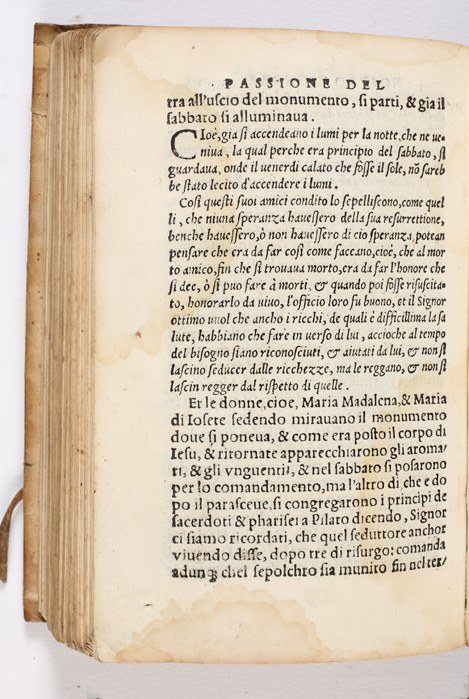 PASSIONE DEL
tra all'uscio del monumento, si parti, & gia il
sabbato si alluminaua.
CIoè, gia si accendeano i lumi per la notte, che ne ue-
niua, la qual perche era principio del sabbato, si
guardaua, onde il uenerdi calato che fosse il sole, nō sareb
be stato lecito d'accendere i lumi.
Cosi questi suoi amici condito lo sepelliscono, come quel
li, che niuna speranza hauessero della sua resurrettione,
benche hauessero, ò non hauessero di cio speranza, potean
pensare che era da far cosi come faceano, cioè, che al mor
to amico, fin che si trouaua morto, era da far l'honore che
si dee, ò si puo fare à morti, & quando poi fosse risuscita-
to, honorarlo da uiuo, l'officio loro fu buono, et il Signor
ottimo uuol che anchor i ricchi, de quali è difficillima la sa
lute, habbiano che fare in uerso di lui, accioche al tempo
del bisogno siano riconosciuti, & aiutati da lui, & non si
lascino seducer dalle ricchezze, ma le reggano, & non si
lascin regger dal rispetto di quelle.
Et le donne, cioe, Maria Madalena, & Maria
di Iosete sedendo mirauano il monumento
doue si poneua, & come era posto il corpo di
Iesu, & ritornate apparecchiarono gli aroma-
ti, & gli vnguenti, & nel sabbato si posarono
per lo comandamento, ma l'altro di, che e do
po il parasceue, si congregarono i principi de
sacerdoti & pharisei a Pilato dicendo, Signor
ci siamo ricordati, che quel seduttore anchor
viuendo disse, dopo tre di risurgo: comanda
adunq; chel sepolchro sia munito fin nel ter-